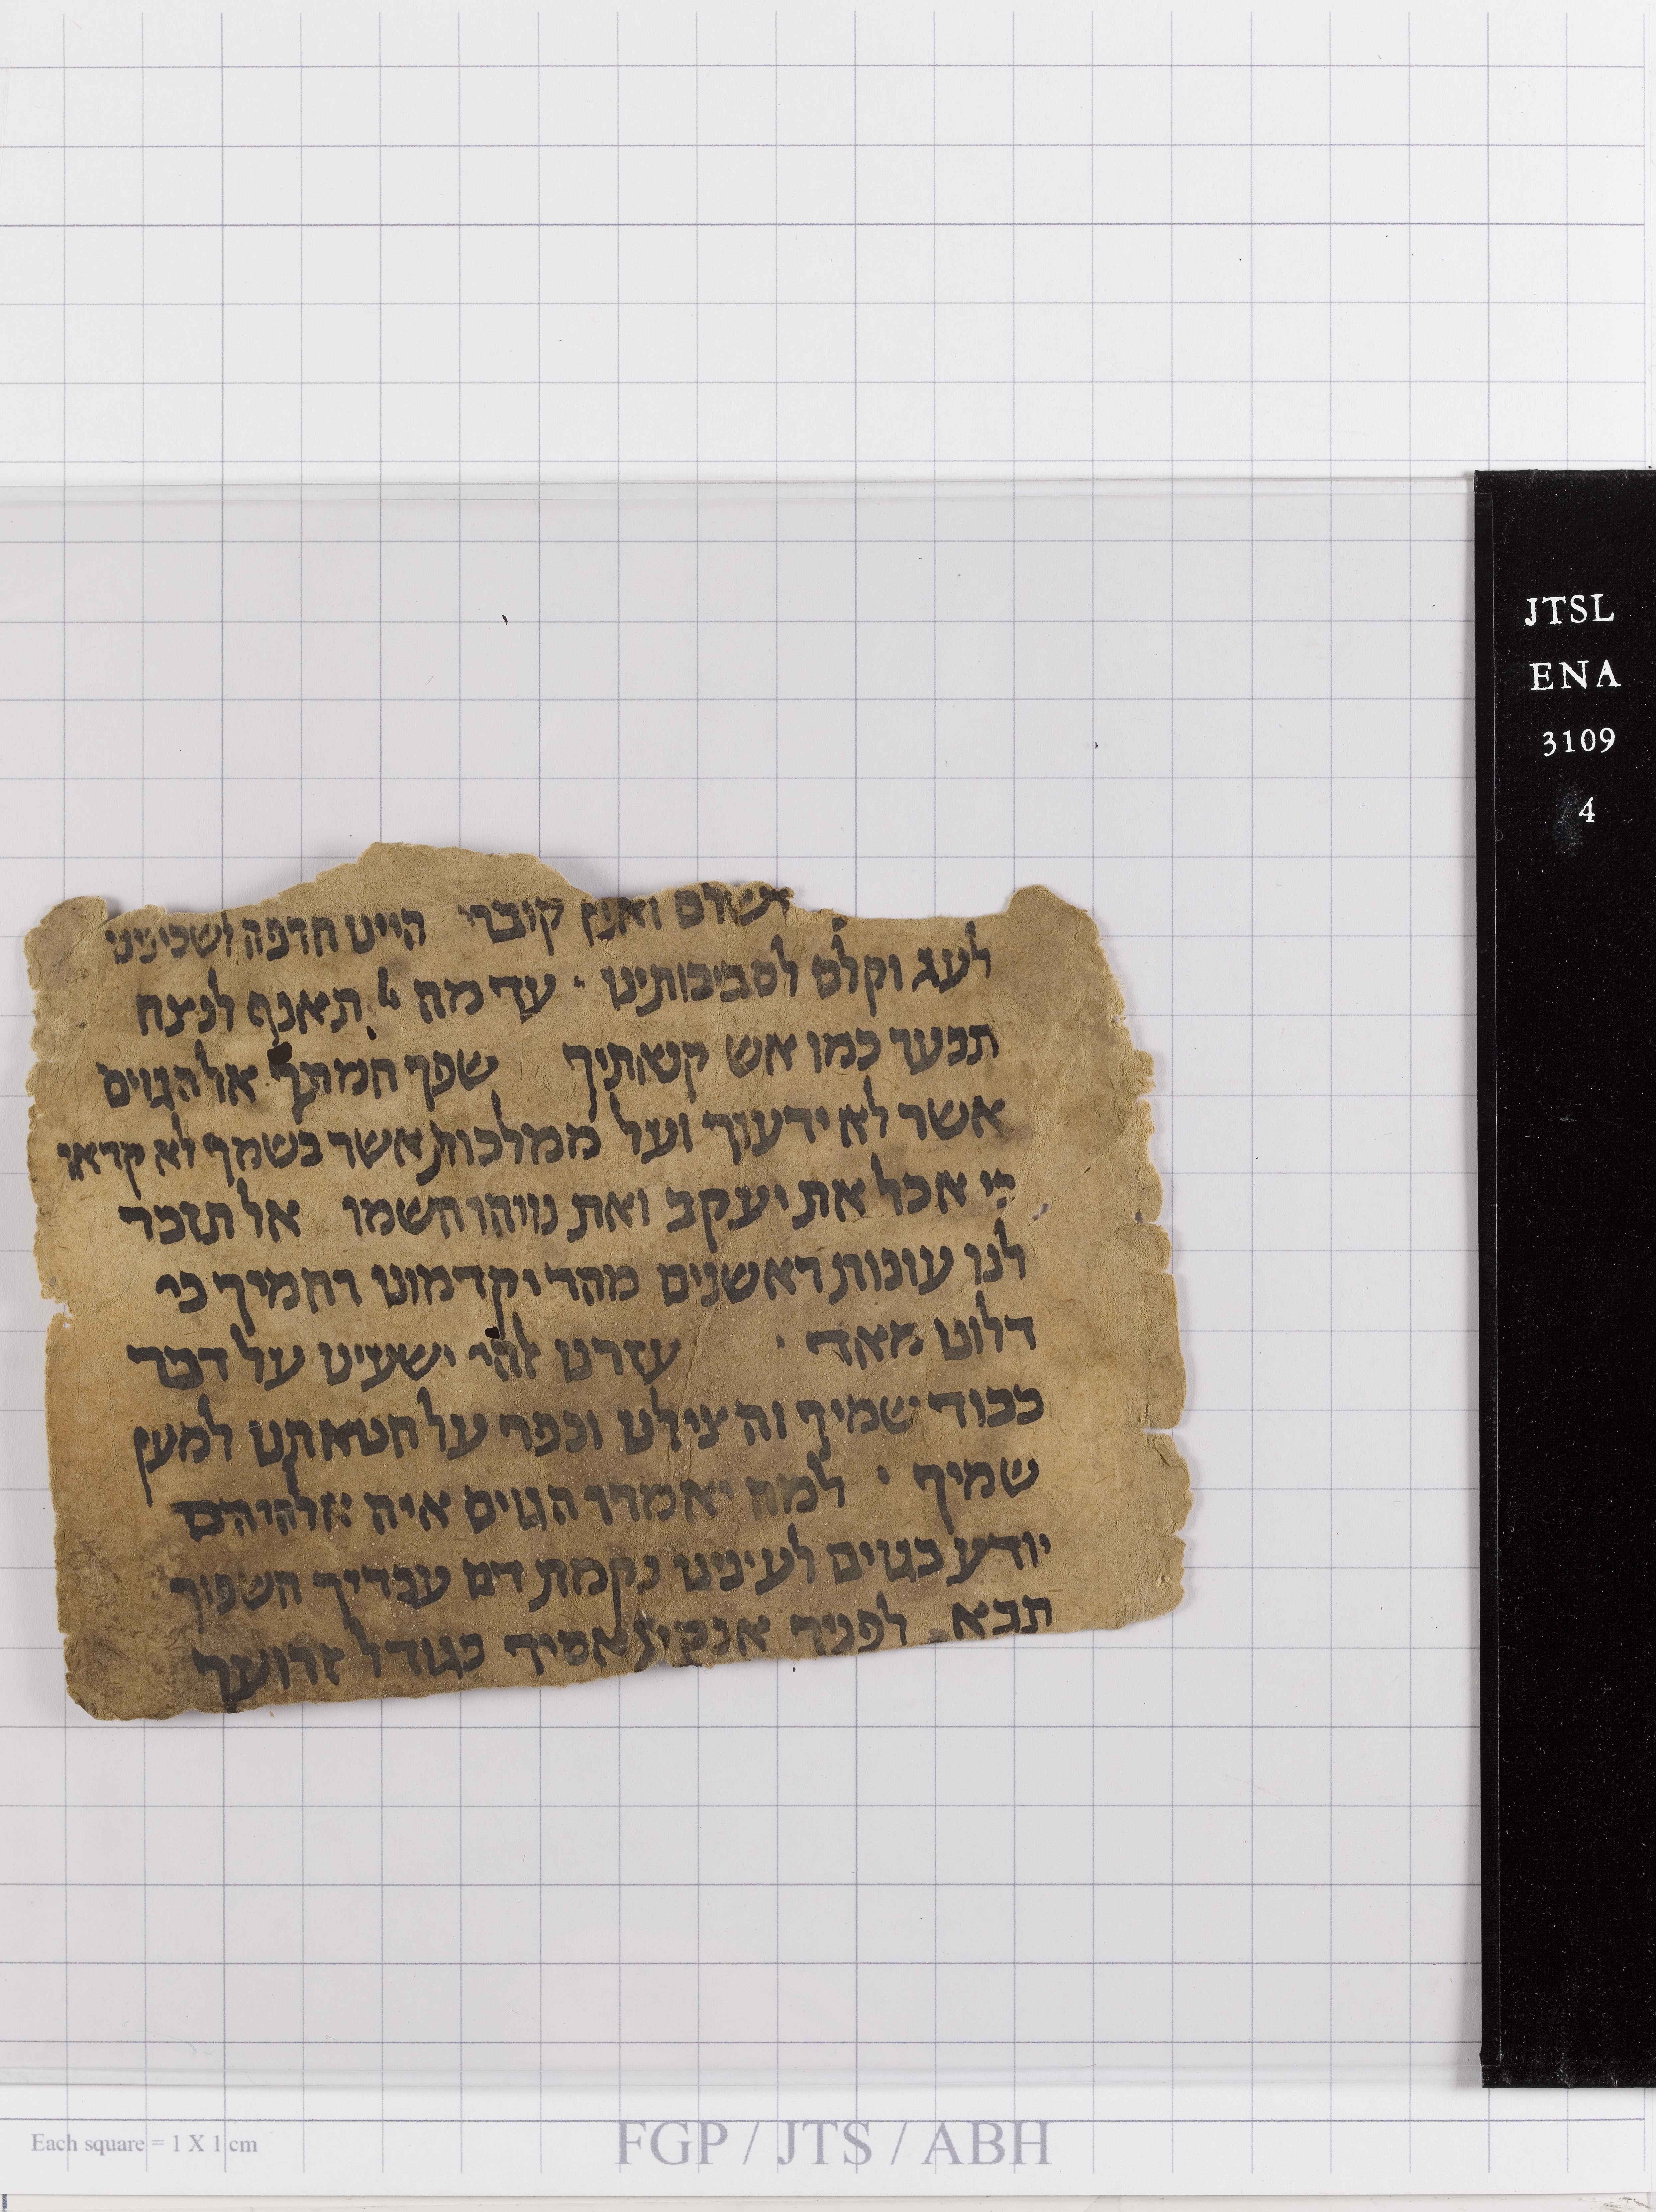 ואין קוברי היינו חרפה לשכינינו
לעג וקלס לסביבותינו עד מה ייי תאנף לנצח
תבער כמו אש קנאתיך שפך חמתך אל הגוים
אשר לא ידעוך ועל ממלכות אשר בשמך לא קראו
כי אכל את יעקב ואת נויהו השמו אל תזכר
לנו עונות ראשנים מהר יקדמונו רחמיך כי
דלונו מאד עזרנו אלהי ישעינו על דבר
כבוד שמיך והצילנו וכפר על חטאתנו למען
שמיך למה יאמרו הגוים איה אלהיהם
יודע בגוים לעינינו נקמת דם עבדיך השפוך
תבא לפניך אנקת אסיר כגודל זרועך
JTSL
ENA
3109
4
Each square = 1 X 1 cm
FGP / JTS / ABH